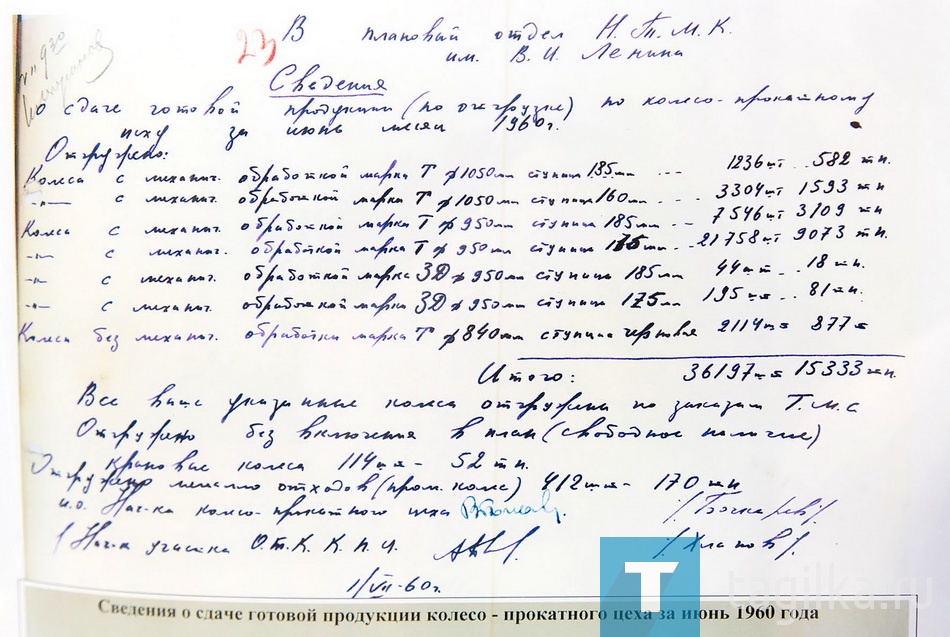 23
В плановый отдел Н.Т.М.К.
им. В.И. Ленина
Сведения
о сдаче готовой продукции (по отгрузке) по колесо-прокатному
цеху за июнь месяц 1960г.
Отгружено:
Колеса с механич. обработкой марка Т ф1050мм ступица 185мм --- 1236шт .. 582 тн.
-"- с механич. обработкой марка Т ф1050мм ступица 160мм --- 3304шт 1593 тн
Колеса с механич. обработкой марка Т ф950мм ступица 185мм -- 7546шт 3109 тн
-"- с механич. обработкой марка Т ф950мм ступица 175мм -- 21758шт 9073 тн.
-"- с механич. обработкой марка ЗД ф950мм ступица 185мм 44шт -- 18 тн.
-"- с механич. обработкой марка ЗД ф950мм ступица 175мм 195шт .. 81 тн.
Колеса без механич. обработки марка Т ф840мм ступица черновая 2114шт 877
Итого: 36197шт 15333 тн.
Все выше указанные колеса отгружены по заказам Т.М.С
Отгружено без включения в план (свободное наличие)
крановые колеса 114шт - 52 тн.
Отгружено металло отходов (пром. колес) 412шт - 170 тн
и.о. Нач-ка колесо-прокатного цеха /Бочкарев/.
/Нач-к участка О.Т.К. К.П.Ц. /Хлапов/.
1/VII-60г.
Сведения о сдаче готовой продукции колесо - прокатного цеха за июнь 1960 года
T
tagilka.ru